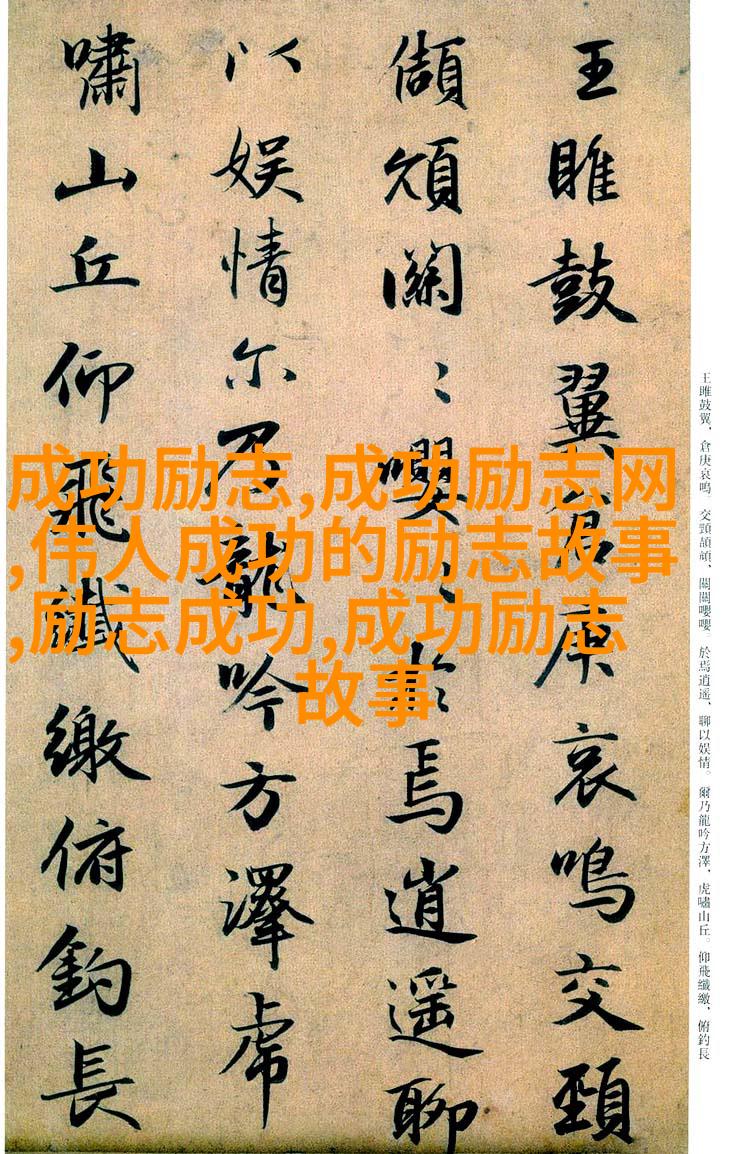 王雎鼓翼倉庚哀鳴交頸
頡頏關〻嚶〻於焉逍遥聊
以娱情尔乃龍吟方澤虎
嘯山丘仰飛纖繳俯釣長
王雎鼓翼，倉庚哀鳴，交頸頡頏，關關嚶嚶。於焉逍遥，聊以娱情。爾乃龍吟方澤，虎嘯山丘。仰飛纖繳，俯釣長
成功励志,成功励志网
,伟人成功的励志故事
,励志成功,成功励志
故事